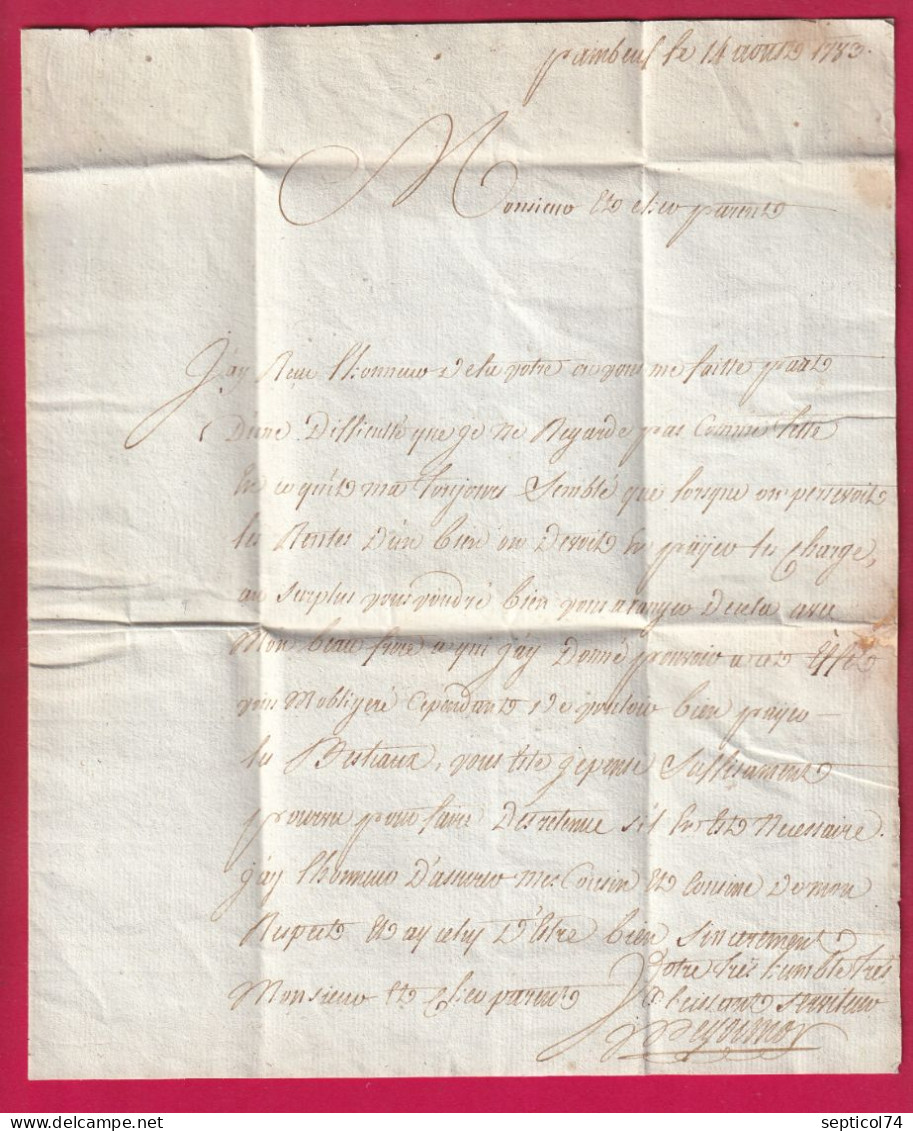 paimbeuf le 14 aoust 1783.
Monsieur Et cher parent
J'ay Recu l'honneur de la votre ou vous me faitte part
D'une Difficulté que je Ne Regarde pas Comme telle
En ce qu'il ma toujours Semblé que lorsque on persevoit
les Rentes D'un bien on Devoit En payer les Charge,
au Surplus vous voudré bien vous arranger De cela avec
Mon beau frere a qui j'ay Donné pouvoir a cet Effet
vous M'obligeré Cependant de vouloir bien payer
les Bestiaux, vous ete je pense Suffisament
pourvu pour faire Des retenue s'il En est Necessaire.
j'ay l'honneur D'assurer mes Cousin et Cousine De mon
Respect Et ay celuy D'Estre bien Sincerement
Votre très humble très
Monsieur Et cher parent
obeissant Serviteur
septicol74